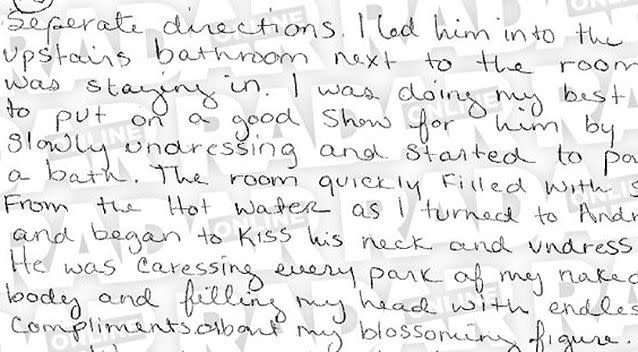 Seperate directions. I led him into the
upstairs bathroom next to the room
was staying in. I was doing my best
to put on a good Show for him by
Slowly undressing and Started to po
a bath. The room quickly Filled with s
From the Hot Water as I turned to Andr
and began to Kiss his neck and undress
He was caressing every park of my naked
body and filling my head with endles
Compliments about my blossoming figure.